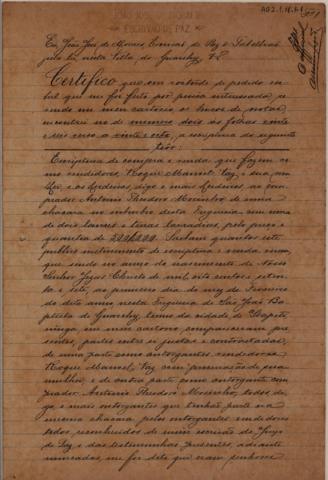 JOÃO JOSÉ DE MORAES
ESCRIVÃO DE PAZ
Eu, João José de Moraes, Escrivão de Paz e Tabellião
nesta Villa do Guarehy, &
Certifico que em vontade de pedido ver
bal que me foi feito por pessoa interessada, re
vendo em meu cartorio os livros de notas,
encontrei no de numero dois as folhas vinte
e seis verso a vinte e oito, a escriptura do seguinte
teor:
Escriptura de compra e venda que fazem co
mo vendedores, Roque Manoel Vaz, e sua mu
lher, e de Ordens, digo e mais herdeiros, ao com
prador Antonio Theodoro Mosinho de uma
chacara no suburbio desta Freguezia com
de dois lances e terras lavradias, pelo preço e
quantia de Saibam quantos este
publico instrumento de escriptura e venda virem,
que sendo no anno do nascimento de Nosso
Senhor Jezus Christo de mil, oito centos e seten
ta e sete, ao primeiro dia do mez de Fevereiro
do dito anno nesta Freguezia de São João Ba
ptista de Guarehy, termo da cidade de Itapeti
ninga, em meu cartorio, compareceram pre
sentes, partes entre si justas e contractadas,
de uma parte como outorgantes vendedores
Roque Manoel Vaz com procuração de sua
mulher e de outra parte como outorgante com
prador Antonio Theodoro Mosinho, todos, di
go e mais outorgantes que tinhão parte na
mesma chacara, pelos outorgantes vendedores
todos, reconhecidos de mim escrivão do Juizo
de Paz e das testimunhas presentes, adiante
nomeadas, me foi dito que eram senhores